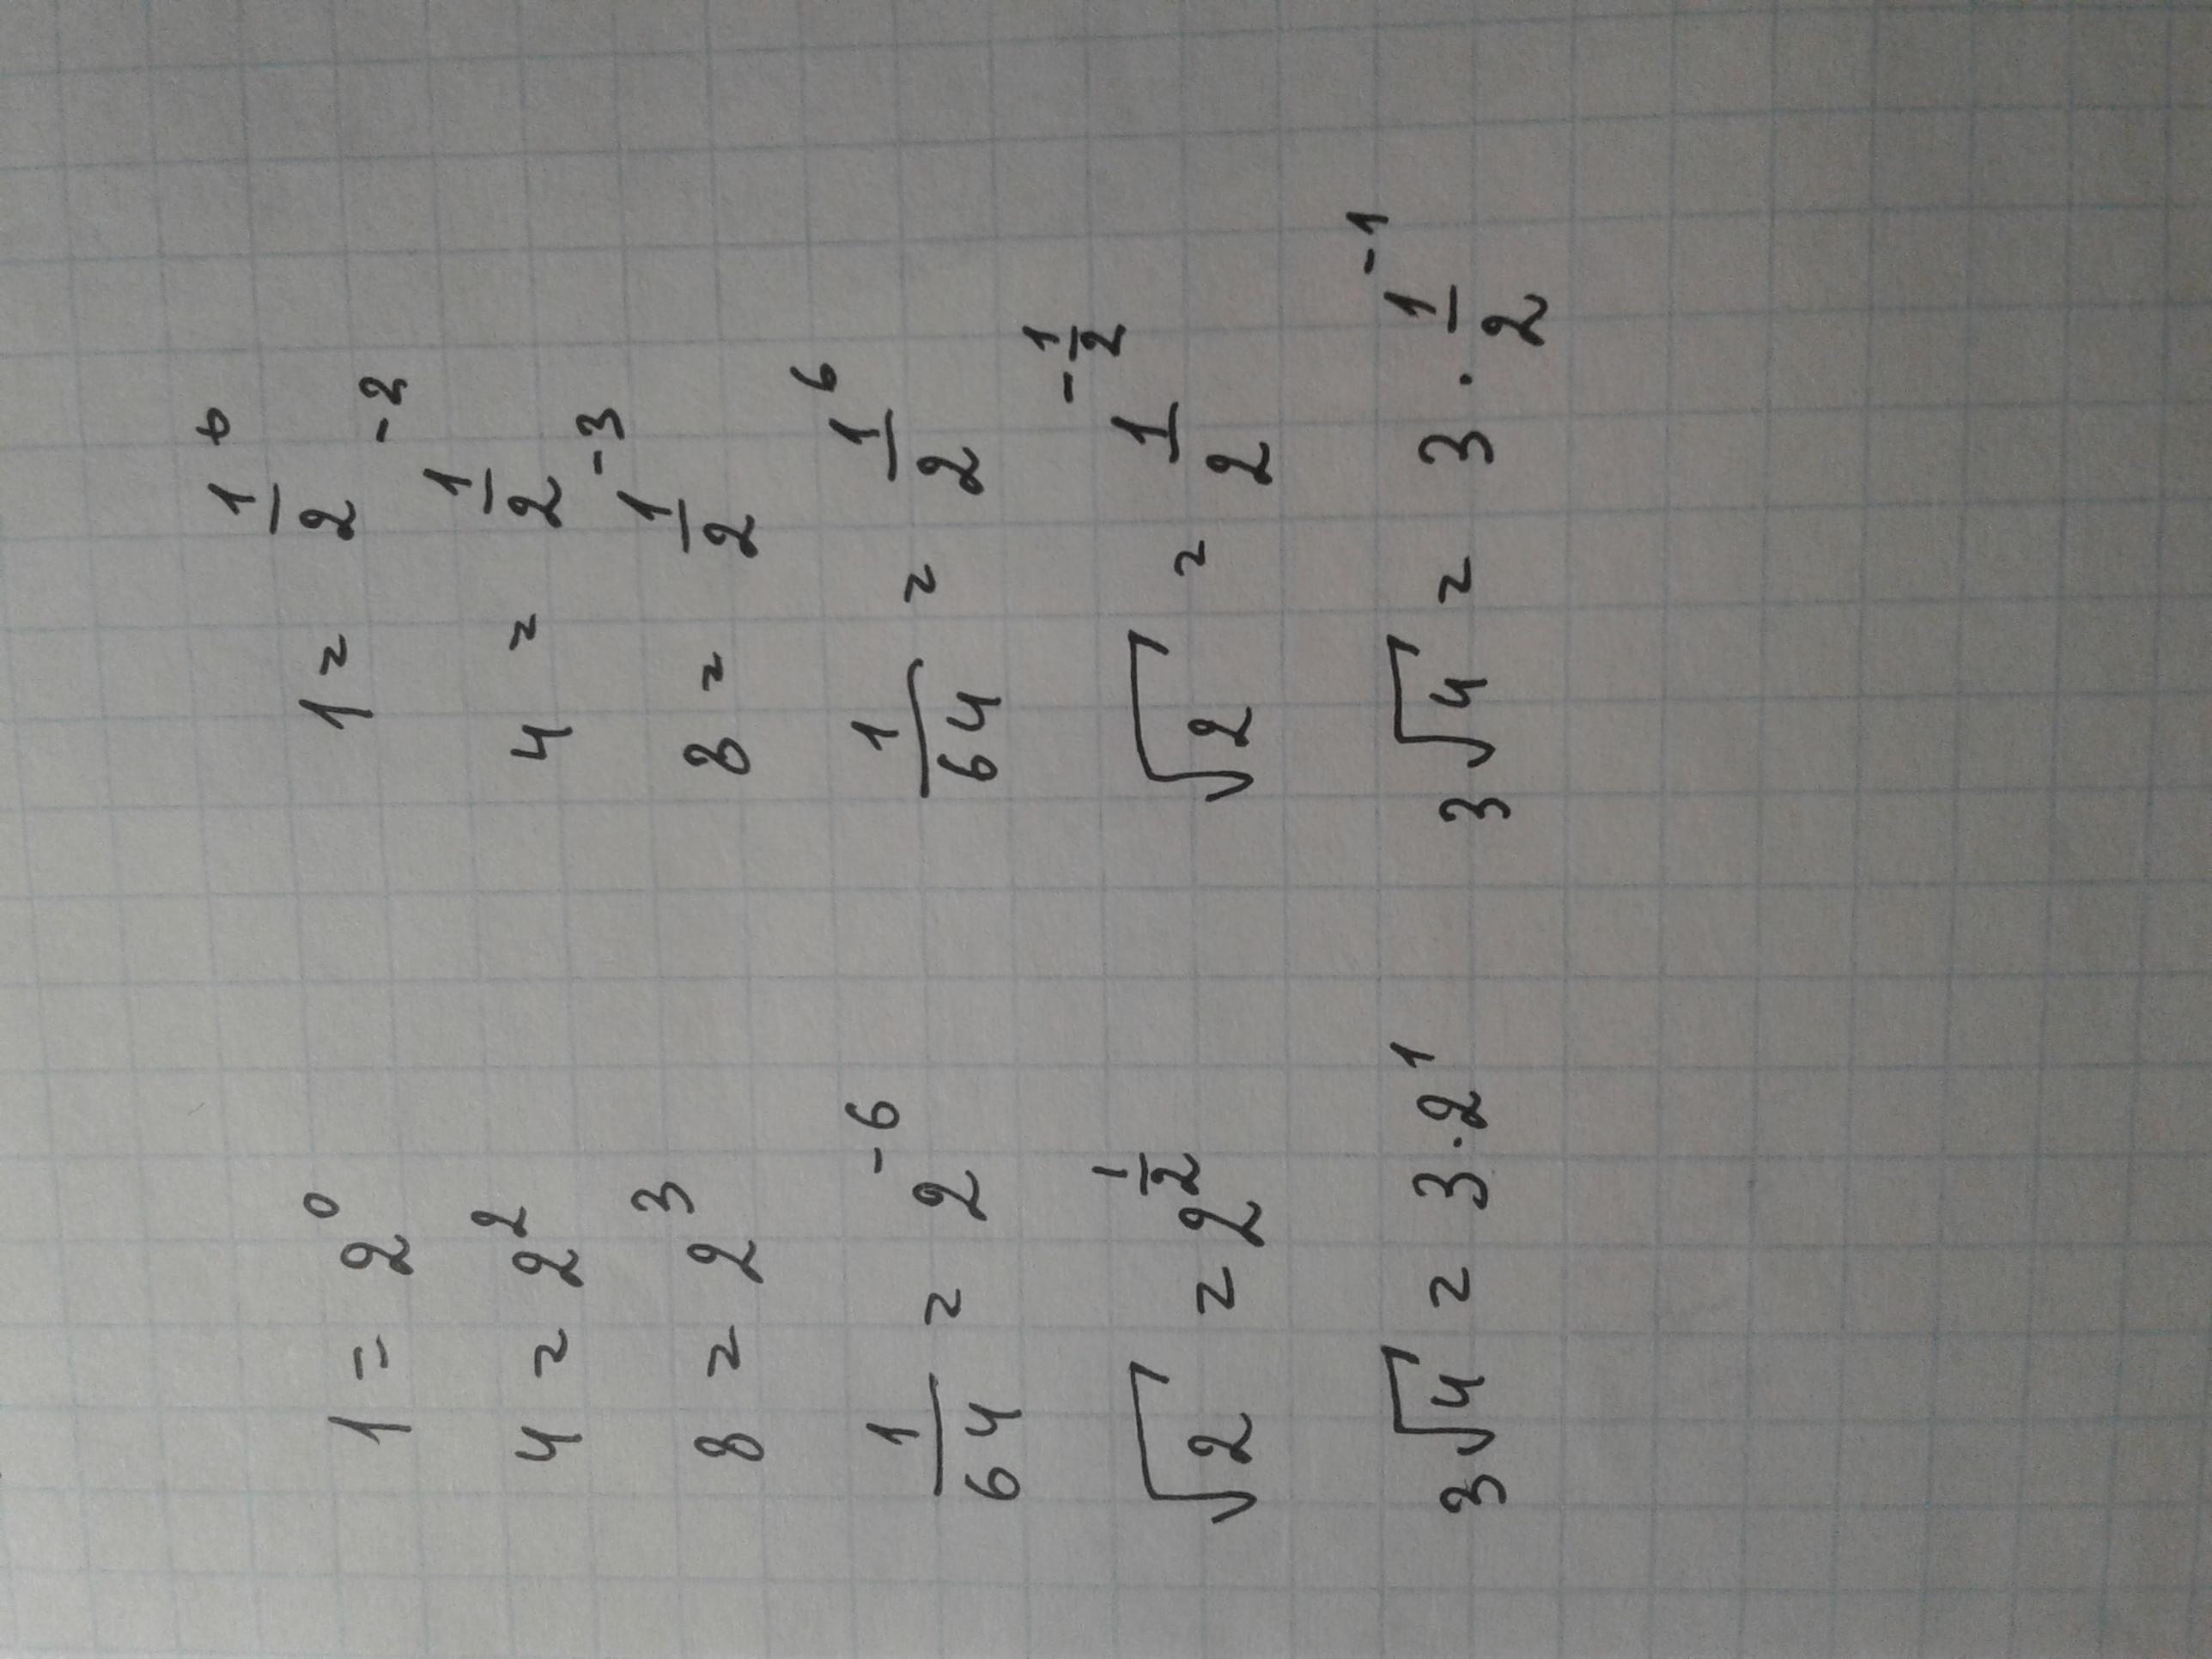 1 = 2⁰
4 = 2²
8 = 2³
1/64 = 2⁻⁶
√2 = 2^(1/2)
3√4 = 3·2¹
1 = 1/2⁰
4 = 1/2⁻²
8 = 1/2⁻³
1/64 = 1/2⁶
√2 = 1/2^(-1/2)
3√4 = 3·1/2⁻¹